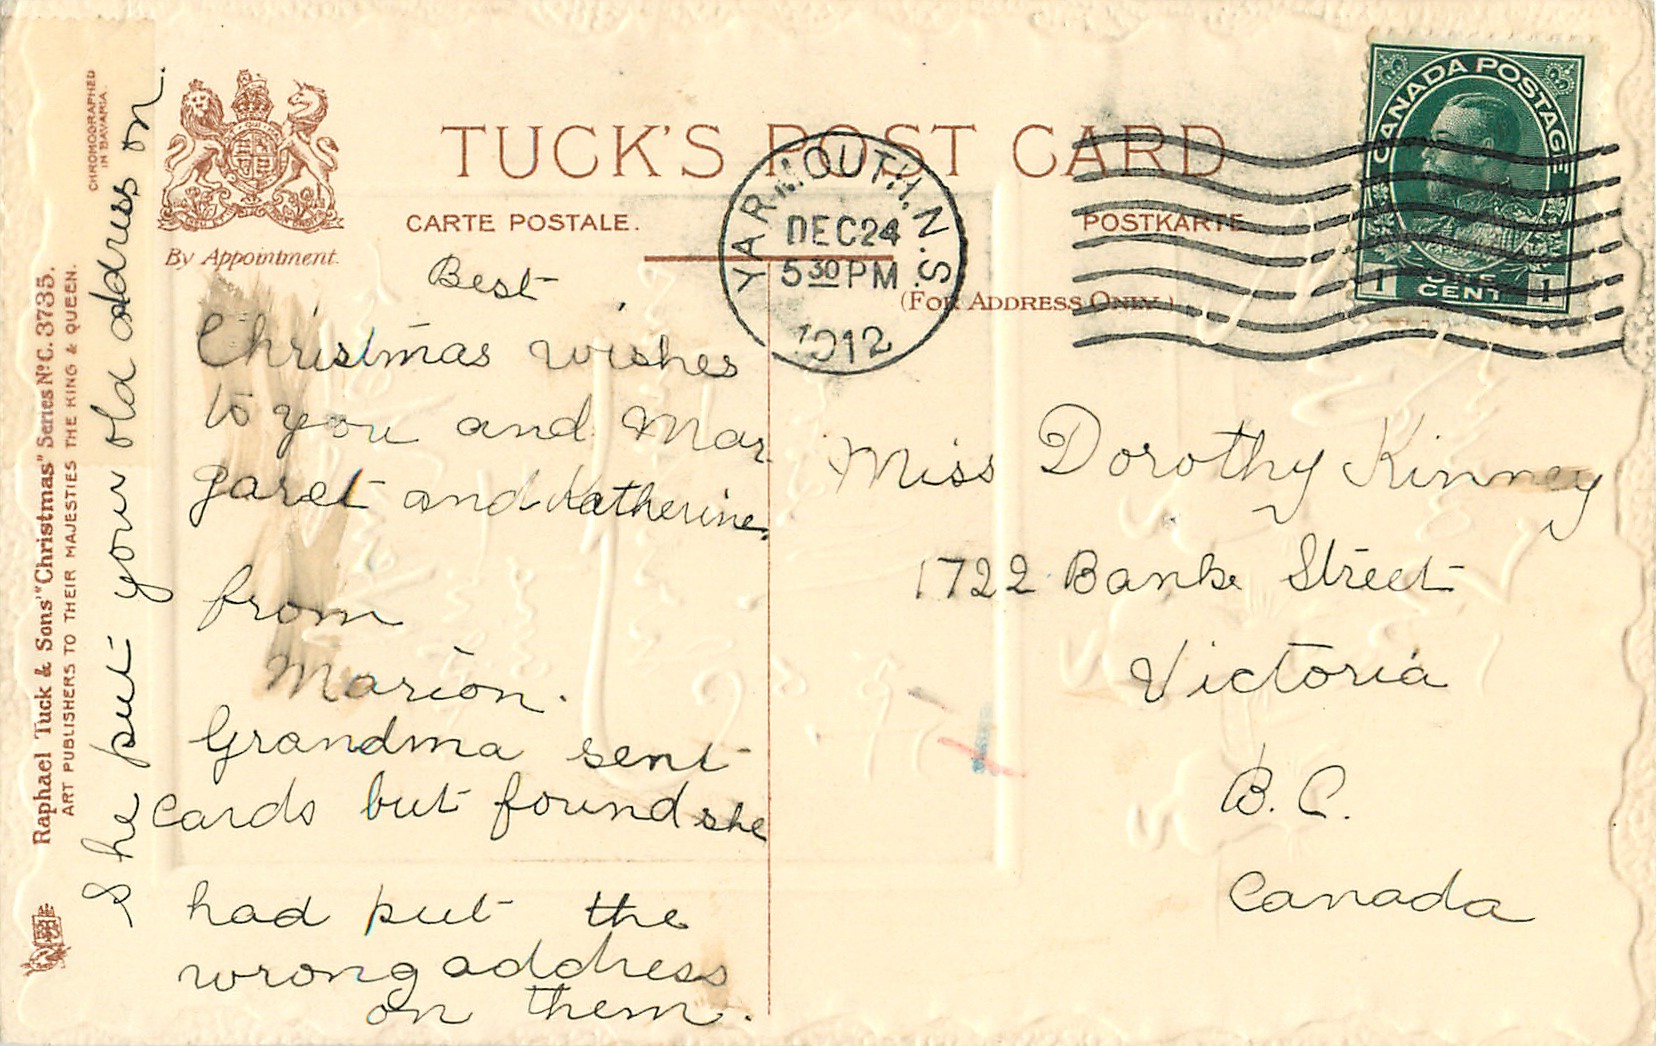 TUCK'S POST CARD
CARTE POSTALE.
POSTKARTE
(FOR ADDRESS ONLY.)
By Appointment.
CHROMOGRAPHED
IN BAVARIA.
Raphael Tuck & Sons' "Christmas" Series No. C. 3735.
ART PUBLISHERS TO THEIR MAJESTIES THE KING & QUEEN.
YARMOUTH, N.S.
DEC 24
5 30 PM
1912
CANADA POSTAGE
1 ONE 1
CENT
Best
Christmas wishes
to you and Mar
garet and Katherine.
from
Marion.
Grandma sent
cards but found she
had put the
wrong address
on them.
She put your old address on.
Miss Dorothy Kinney
1722 Banke Street
Victoria
B. C.
Canada